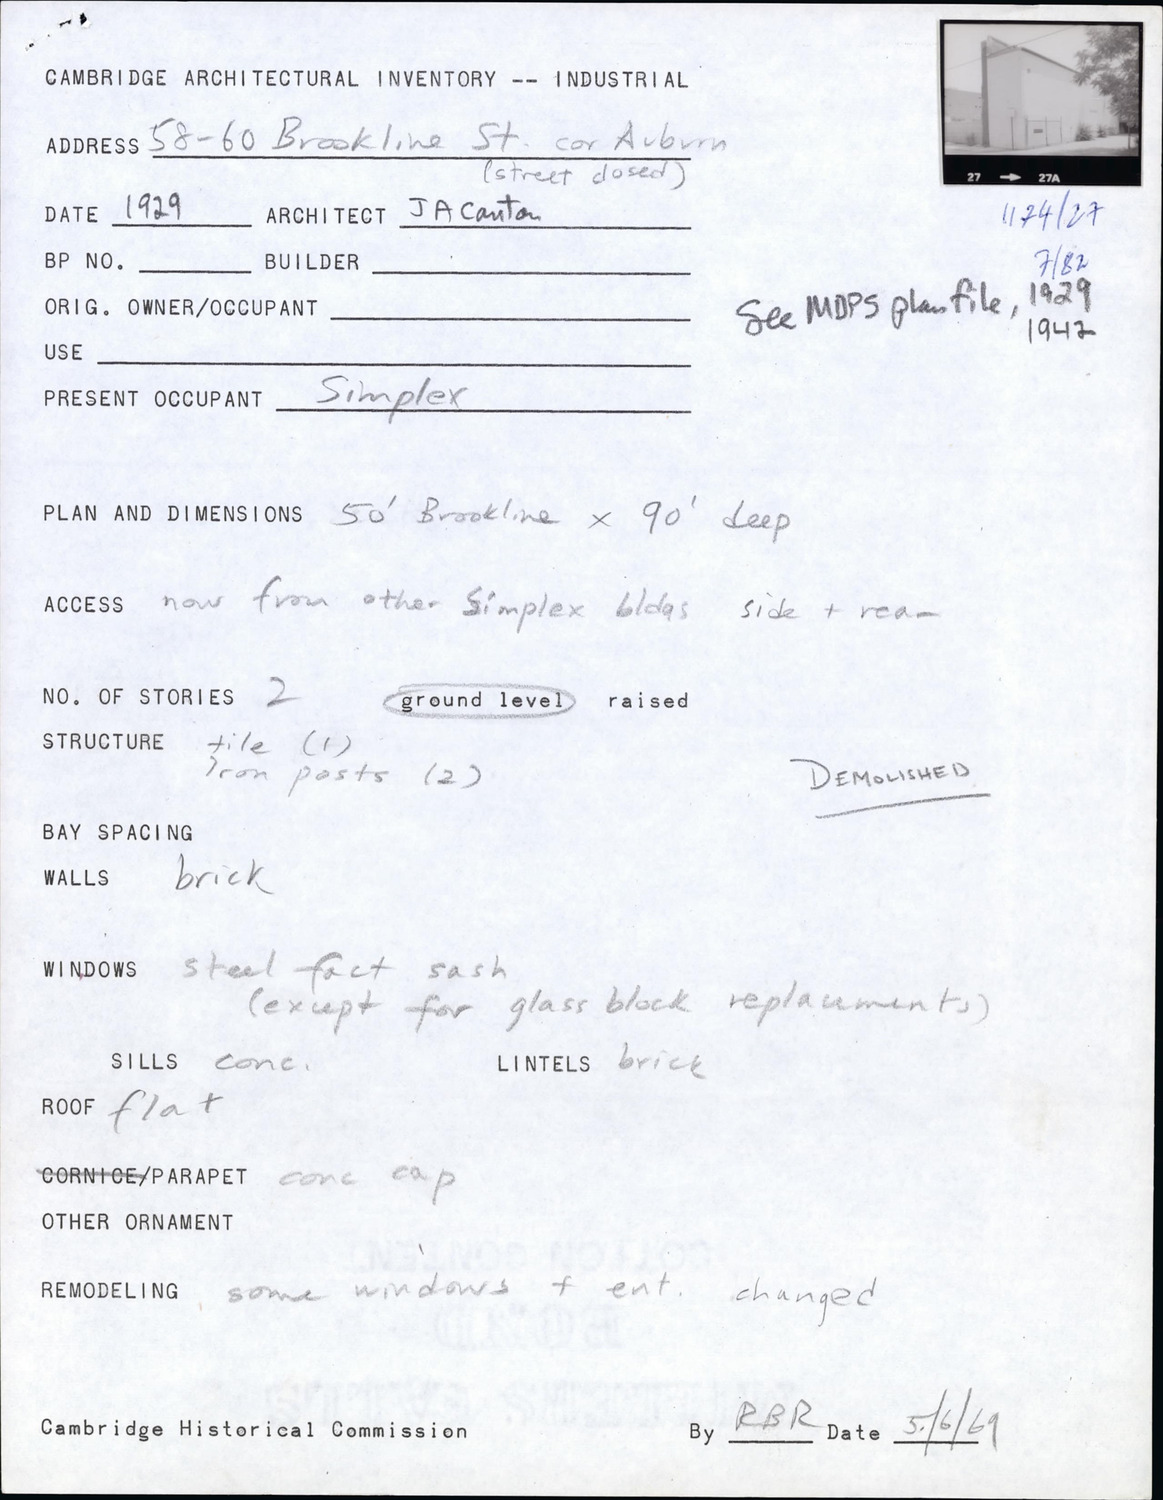 CAMBRIDGE ARCHITECTURAL INVENTORY -- INDUSTRIAL
ADDRESS 58-60 Brookline St. cor Auburn
(street closed)
27 → 27A
DATE 1929 ARCHITECT J A Canton
1174/27
BP NO. BUILDER
7/82
ORIG. OWNER/OCCUPANT
See MDPS plan file, 1929
1942
USE
PRESENT OCCUPANT Simplex
PLAN AND DIMENSIONS 50' Brookline x 90' deep
ACCESS now from other Simplex bldgs side + rear
NO. OF STORIES 2 ground level raised
STRUCTURE tile (1)
Iron posts (2)
DEMOLISHED
BAY SPACING
WALLS brick
WINDOWS steel fact sash
(except for glass block replacements)
SILLS conc. LINTELS brick
ROOF flat
CORNICE/PARAPET conc cap
OTHER ORNAMENT
REMODELING some windows + ent. changed
Cambridge Historical Commission By RBR Date 5/6/69